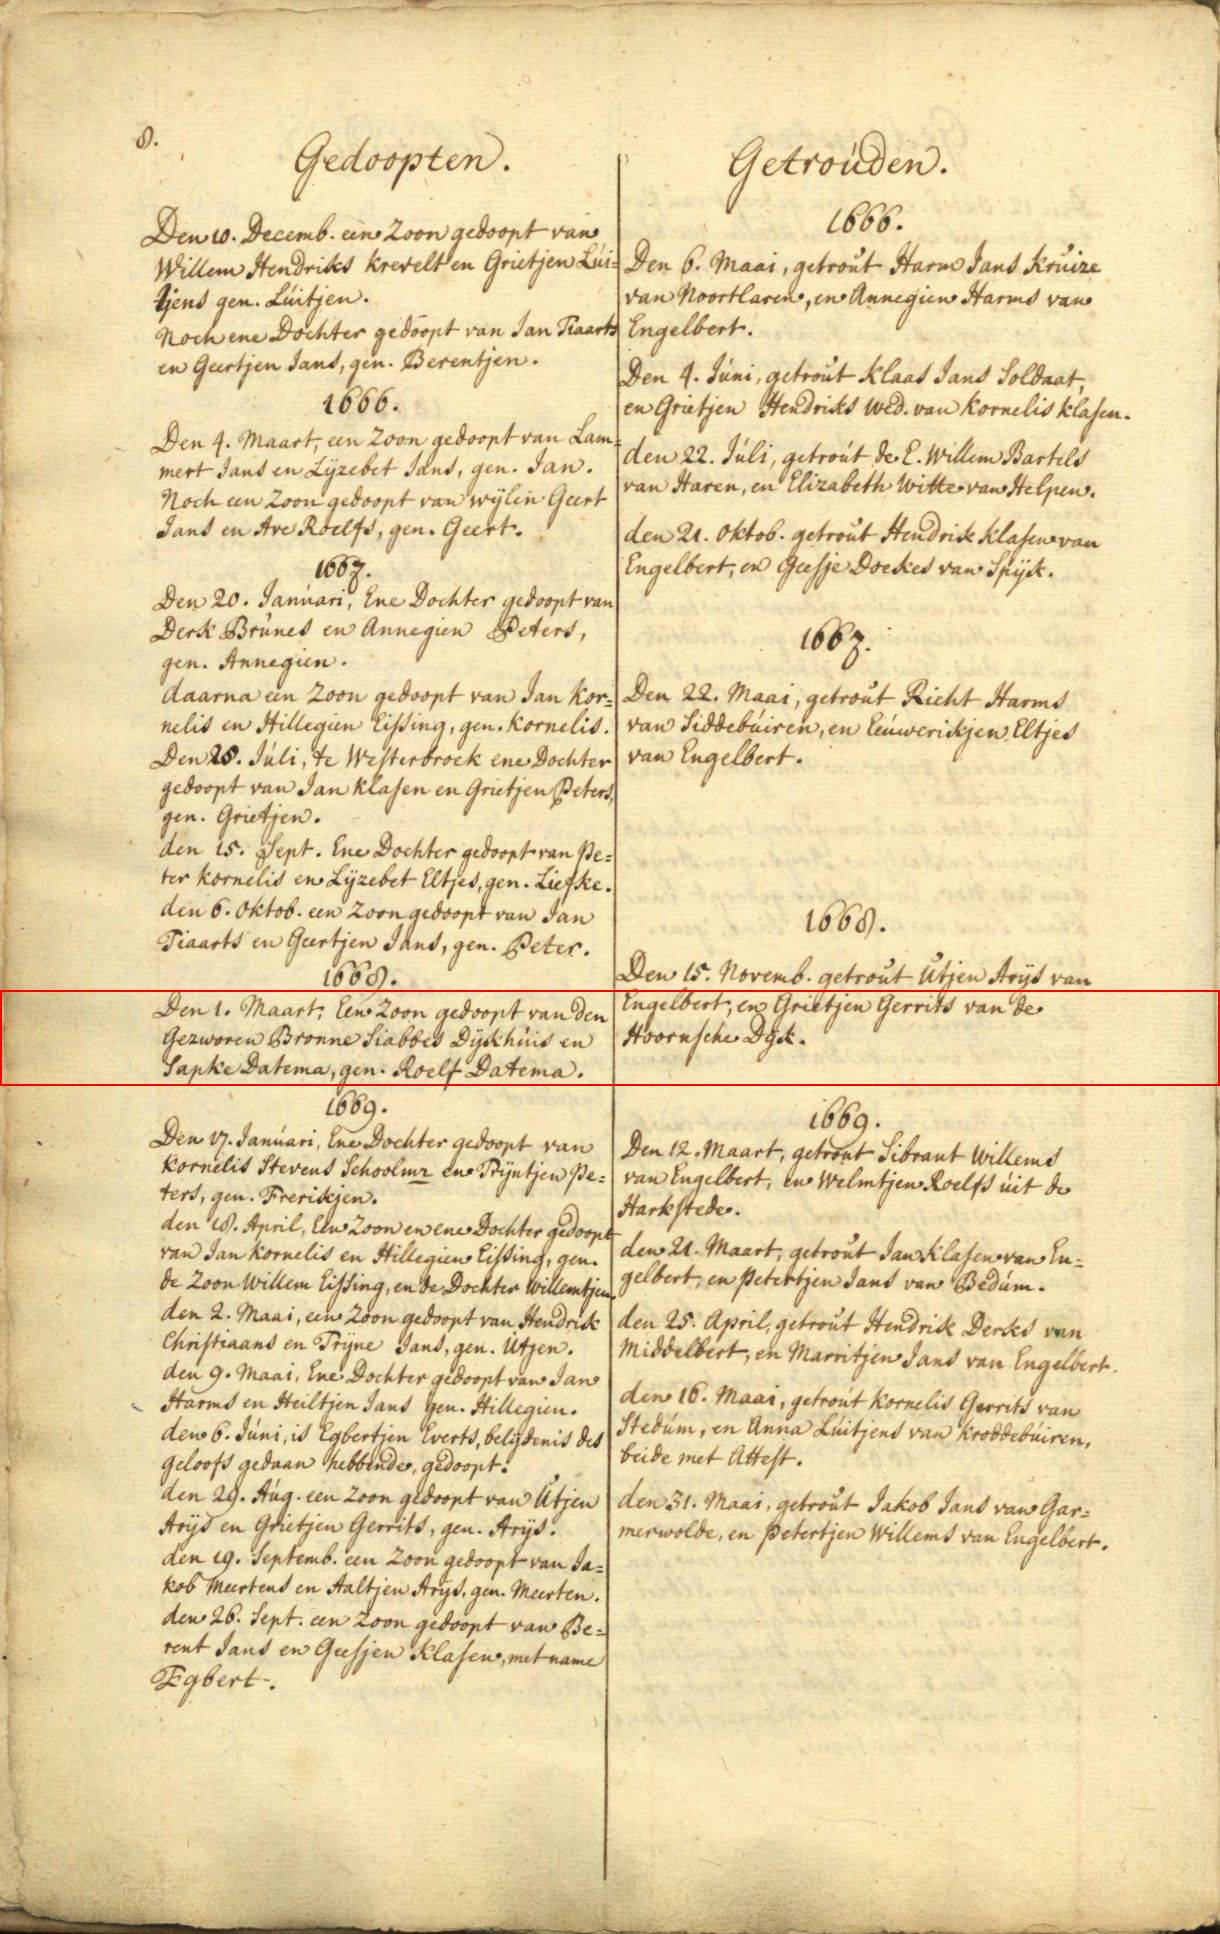 8.
Gedoopten.
Den 10. Decemb. een Zoon gedoopt van
Willem Hendriks Krevelt en Grietjen Lúi=
tjens gen. Lúitjen.
Noch ene Dochter gedoopt van Jan Tiaarts
en Geertjen Jans, gen. Berentjen.
1666.
Den 4. Maart, een Zoon gedoopt van Lam=
mert Jans en Lÿzebet Jans, gen. Jan.
Noch een Zoon gedoopt van wÿlen Geert
Jans en Ave Roelfs, gen. Geert.
1667.
Den 20. Janúari, Ene Dochter gedoopt van
Derk Brúnes en Annegien Peters,
gen. Annegien.
daarna een Zoon gedoopt van Jan Kor=
nelis en Hillegien Eissing, gen. Kornelis.
Den 28. Júli, te Westerbroek ene Dochter
gedoopt van Jan Klasen en Grietjen Peters,
gen. Grietjen.
den 15. Sept. Ene Dochter gedoopt van Pe=
ter Kornelis en Lÿzebet Eltjes, gen. Liefke.
den 6. Oktob. een Zoon gedoopt van Jan
Tiaarts en Geertjen Jans, gen. Peter.
1668.
Den 1. Maart, Een Zoon gedoopt van den
Gezworen Bronne Siabbes Dÿkhúis en
Sapke Datema, gen. Roelf Datema.
1669.
Den 17. Janúari, Ene Dochter gedoopt van
Kornelis Stevens Schoolmr en Trÿntjen Pe=
ters, gen. Frerikjen.
den 18. April, Een Zoon en ene Dochter gedoopt
van Jan Kornelis en Hillegien Eissing, gen.
de Zoon Willem Eissing, en de Dochter Willemtjen.
den 2. Maai, een Zoon gedoopt van Hendrik
Christiaans en Trÿne Jans, gen. Útjen.
den 9. Maai, Ene Dochter gedoopt van Jan
Harms en Heiltjen Jans gen. Hillegien.
den 6. Júni, is Egbertjen Everts, belÿdenis des
geloofs gedaan hebbende, gedoopt.
den 29. Aúg. een Zoon gedoopt van Útjen
Arÿs en Grietjen Gerrits, gen. Arÿs.
den 19. Septemb. een Zoon gedoopt van Ja=
kob Meertens en Aaltjen Arÿs, gen. Meerten.
den 26. Sept. een Zoon gedoopt van Be=
rent Jans en Geesjen Klasen, met name
Egbert.
Getroúden.
1666.
Den 6. Maai, getroút Harm Jans Kruize
van Noortlaren, en Annegien Harms van
Engelbert.
Den 4. Júni, getroút Klaas Jans Soldaat,
en Grietjen Hendriks wed. van Kornelis Klasen.
den 22. Júli, getroút de E. Willem Bartels
van Haren, en Elizabeth Witte van Helpen.
den 21. Oktob. getroút Hendrik Klasen van
Engelbert, en Geesje Doekes van Spÿk.
1667.
Den 22. Maai, getroút Richt Harms
van Siddebúiren, en Leúwerikjen Eltjes
van Engelbert.
1668.
Den 15. Novemb. getroút Útjen Arÿs van
Engelbert, en Grietjen Gerrits van de
Hoornsche Dÿk.
1669.
Den 12. Maart, getroút Sibrant Willems
van Engelbert, en Welmtjen Roelfs úit de
Harkstede.
den 21. Maart, getroút Jan Klasen van En=
gelbert, en Petertjen Jans van Bedúm.
den 25. April, getroút Hendrik Derks van
Middelbert, en Marritjen Jans van Engelbert.
den 16. Maai, getroút Kornelis Gerrits van
Stedúm, en Anna Lúitjens van Kroddebúiren,
beide met Attest.
den 31. Maai, getroút Jakob Jans van Gar=
merwolde, en Petertjen Willems van Engelbert.